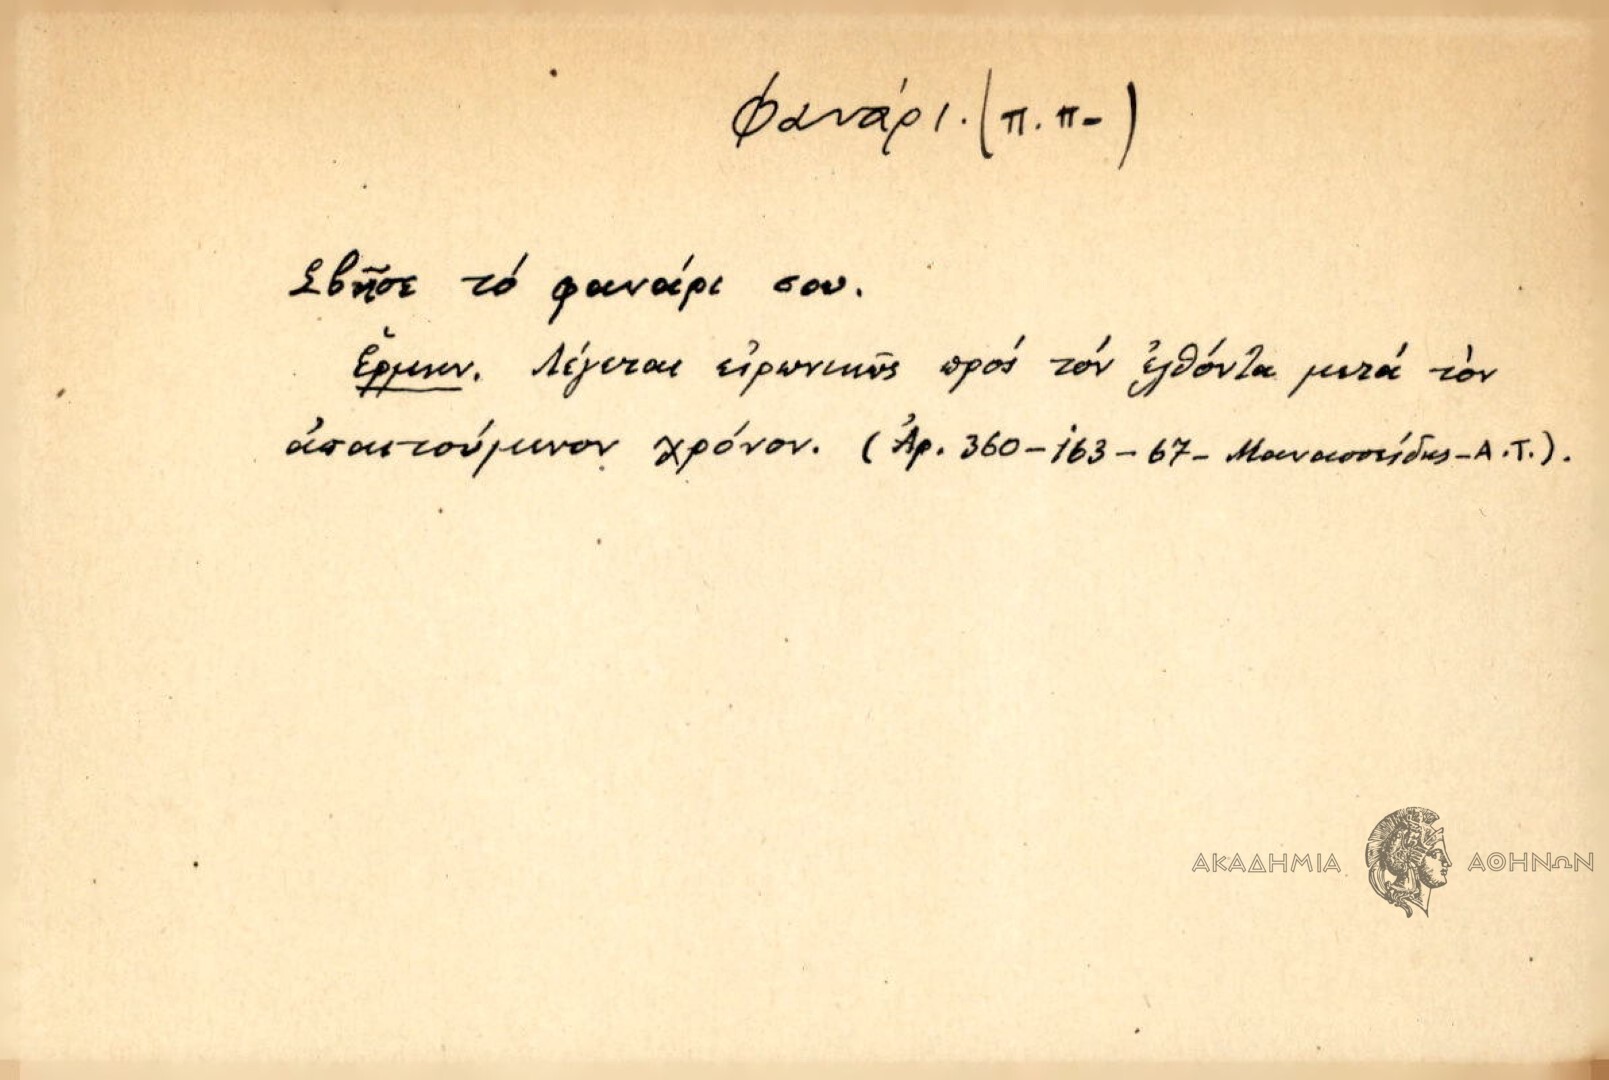 Φανάρι. (π.π-)
Σβῆσε τό φανάρι σου.
Ἑρμην. Λέγεται εἰρωνικῶς πρός τόν ἐλθόντα μετά τὸν
ἀπαιτούμενον χρόνον. (Ἀρ. 360-163-67- Μανασσείδης-Α.Τ.).
ΑΚΑΔΗΜΙΑ ΑΘΗΝΩΝ